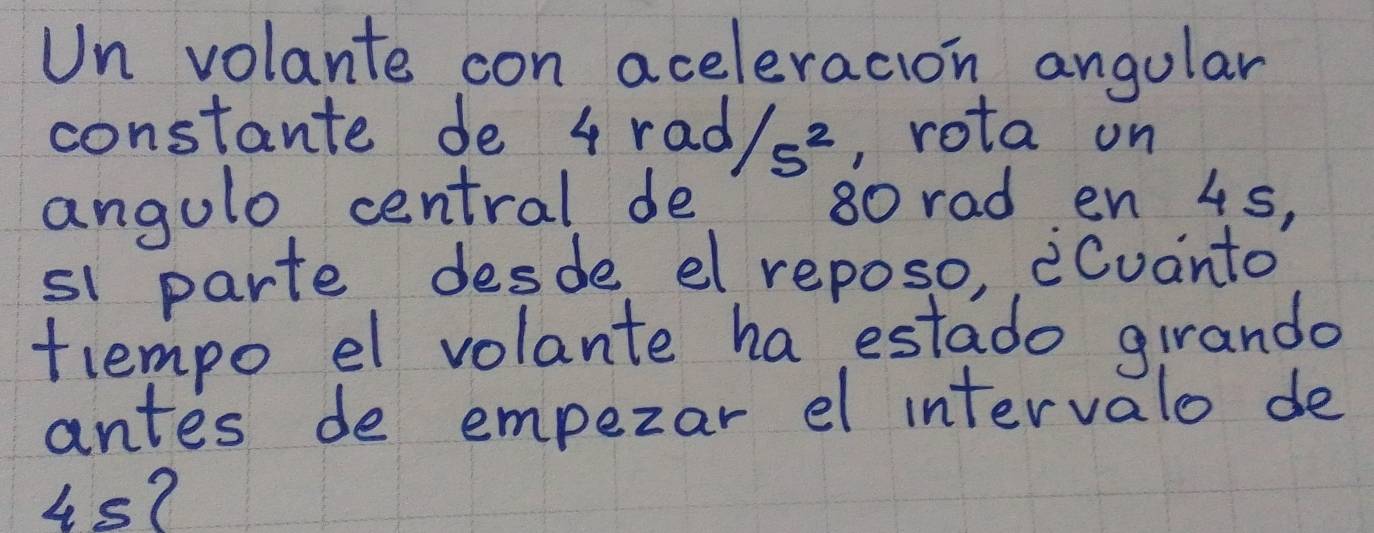 Un volante con aceleración angular
constante de 4 rad/s², rota un
angulo central de 80 rad en 4s,
si parte desde el reposo, ¿Cuánto
tiempo el volante ha estado girando
antes de empezar el intervalo de
4s?